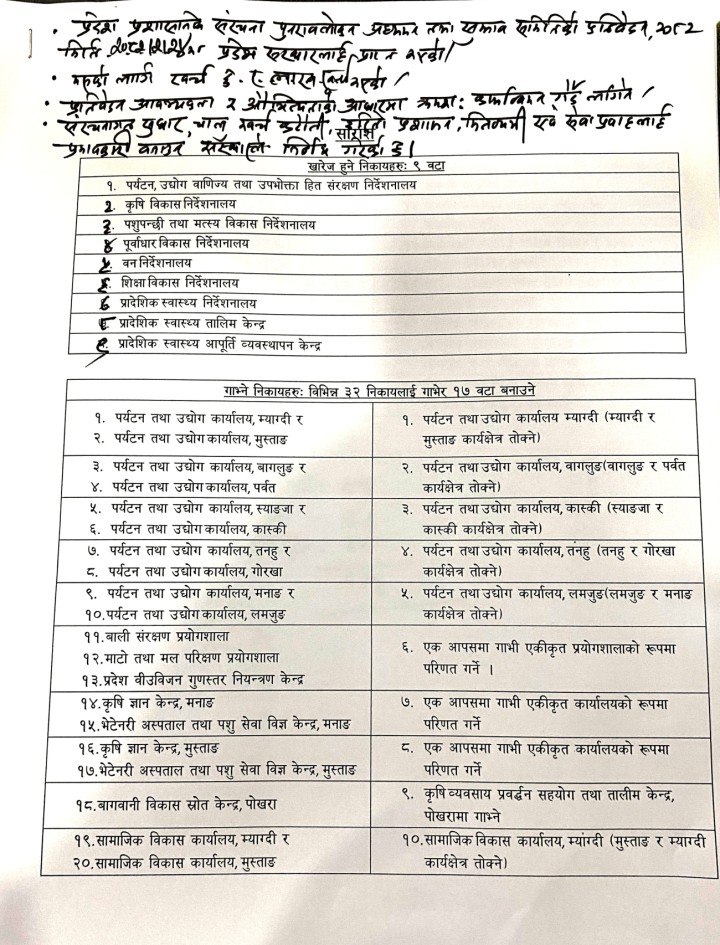 • प्रदेश प्रशासनिक संरचना पुनरावलोकन अध्ययन तथा सुझाव समितिको प्रतिवेदन, २०८२
मिति प्रदेश सरकारलाई प्राप्त भएको।
•
• प्रतिवेदन आवश्यकता र औचित्यताको आधारमा क्रमशः कार्यान्वयन गर्दै लगिने।
• संरचनागत सुधार, चालु खर्च कटौती, प्रशासन, मितव्ययी एवं सेवा प्रवाहलाई
प्रभावकारी बनाउन सरकारले निर्णय गरेको छ।
सारांश
खारेज हुने निकायहरुः ९ वटा
१. पर्यटन, उद्योग वाणिज्य तथा उपभोक्ता हित संरक्षण निर्देशनालय
२. कृषि विकास निर्देशनालय
३. पशुपन्छी तथा मत्स्य विकास निर्देशनालय
४ पूर्वाधार विकास निर्देशनालय
५. वन निर्देशनालय
६. शिक्षा विकास निर्देशनालय
७ प्रादेशिक स्वास्थ्य निर्देशनालय
८ प्रादेशिक स्वास्थ्य तालिम केन्द्र
९. प्रादेशिक स्वास्थ्य आपूर्ति व्यवस्थापन केन्द्र
गाभ्ने निकायहरुः विभिन्न ३२ निकायलाई गाभेर १७ वटा बनाउने
१. पर्यटन तथा उद्योग कार्यालय, म्याग्दी र
२. पर्यटन तथा उद्योग कार्यालय, मुस्ताङ
१. पर्यटन तथा उद्योग कार्यालय म्याग्दी (म्याग्दी र
मुस्ताङ कार्यक्षेत्र तोक्ने)
३. पर्यटन तथा उद्योग कार्यालय, बागलुङ र
४. पर्यटन तथा उद्योग कार्यालय, पर्वत
२. पर्यटन तथा उद्योग कार्यालय, वागलुङ(वागलुङ र पर्वत
कार्यक्षेत्र तोक्ने)
५. पर्यटन तथा उद्योग कार्यालय, स्याङजा र
६. पर्यटन तथा उद्योग कार्यालय, कास्की
३. पर्यटन तथा उद्योग कार्यालय, कास्की (स्याङजा र
कास्की कार्यक्षेत्र तोक्ने)
७. पर्यटन तथा उद्योग कार्यालय, तनहु र
८. पर्यटन तथा उद्योग कार्यालय, गोरखा
४. पर्यटन तथा उद्योग कार्यालय, तनहु (तनहु र गोरखा
कार्यक्षेत्र तोक्ने)
९. पर्यटन तथा उद्योग कार्यालय, मनाङ र
१०.पर्यटन तथा उद्योग कार्यालय, लमजुङ
५. पर्यटन तथा उद्योग कार्यालय, लमजुङ(लमजुङ र मनाङ
कार्यक्षेत्र तोक्ने)
११.बाली संरक्षण प्रयोगशाला
१२.माटो तथा मल परिक्षण प्रयोगशाला
१३.प्रदेश वीउविजन गुणस्तर नियन्त्रण केन्द्र
६. एक आपसमा गाभी एकीकृत प्रयोगशालाको रूपमा
परिणत गर्ने ।
१४.कृषि ज्ञान केन्द्र, मनाङ
१५.भेटेनरी अस्पताल तथा पशु सेवा विज्ञ केन्द्र, मनाङ
७. एक आपसमा गाभी एकीकृत कार्यालयको रूपमा
परिणत गर्ने
१६.कृषि ज्ञान केन्द्र, मुस्ताङ
१७.भेटेनरी अस्पताल तथा पशु सेवा विज्ञ केन्द्र, मुस्ताङ
८. एक आपसमा गाभी एकीकृत कार्यालयको रूपमा
परिणत गर्ने
१८.बागवानी विकास स्रोत केन्द्र, पोखरा
९. कृषि व्यवसाय प्रवर्द्धन सहयोग तथा तालीम केन्द्र,
पोखरामा गाभ्ने
१९.सामाजिक विकास कार्यालय, म्याग्दी र
२०.सामाजिक विकास कार्यालय, मुस्ताङ
१०.सामाजिक विकास कार्यालय, म्यांग्दी (मुस्ताङ र म्याग्दी
कार्यक्षेत्र तोक्ने)